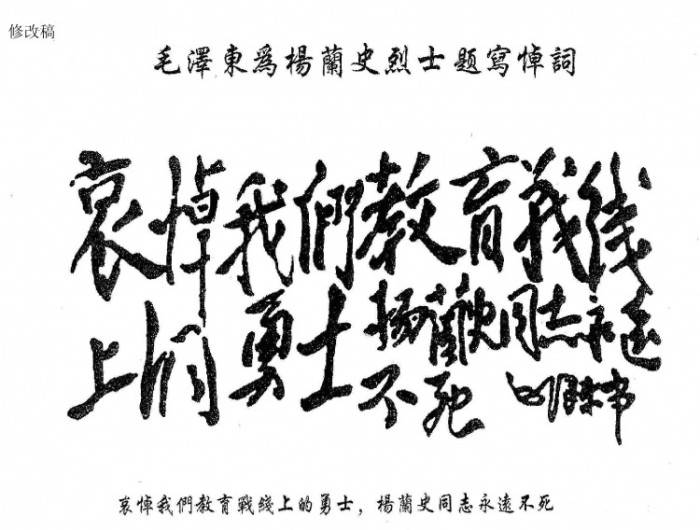 修改稿
毛澤東爲楊蘭史烈士題寫悼詞
哀悼我們教育战线
上的勇士楊蘭史同志永远
不死 毛澤東书
哀悼我們教育戰綫上的勇士，楊蘭史同志永遠不死